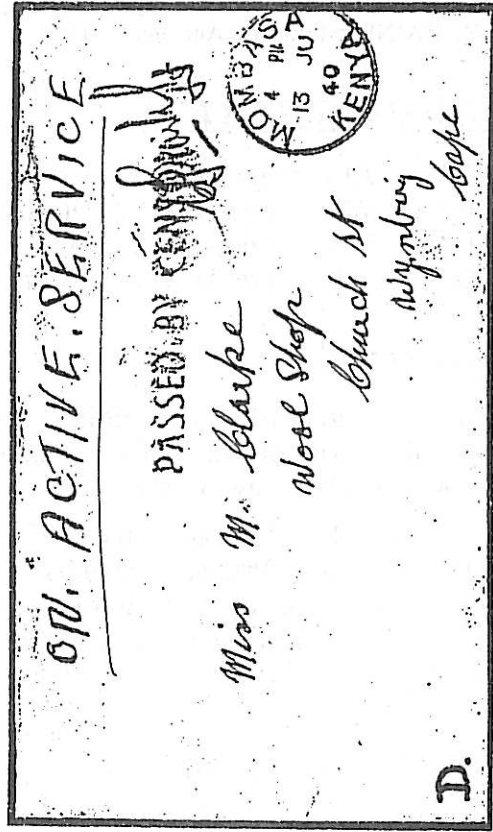 ON. ACTIVE. SERVICE
PASSED BY CENSOR
MOMBASA
4 PM
13 JU
40
KENYA
Miss M. Clarke
Wool Shop
Church St
Wynberg
Cape
D.